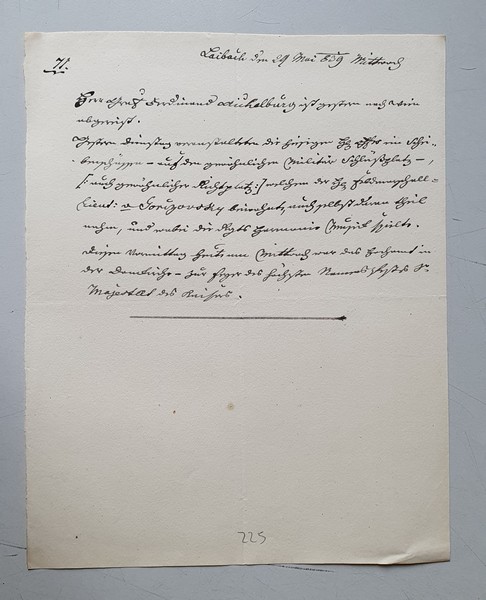 7/.
Laibach den 29 Mai 839 Mittwoch
Herr Graf Ferdinand Aichelburg ist gestern nach Wien
abgereist.
Gestern Dienstag veranstalteten die hiesigen H. im Schei-
benschüssen – auf den gewöhnlichen Militär Schüßplatz –,
/: auch gewöhnlicher Richtplatz :/ welchem der H. Feldmarschall-
Lieut: v beiwohnt, auch selbst daran theil
nahm, und wobei die Rgts Harmonie Musik spielte.
Diesen Vormittag heute am Mittwoch war das Hochamt in
der Domkirche – zur Feyer des höchsten Namensfestes Sr
Majestaet des Kaisers.
225